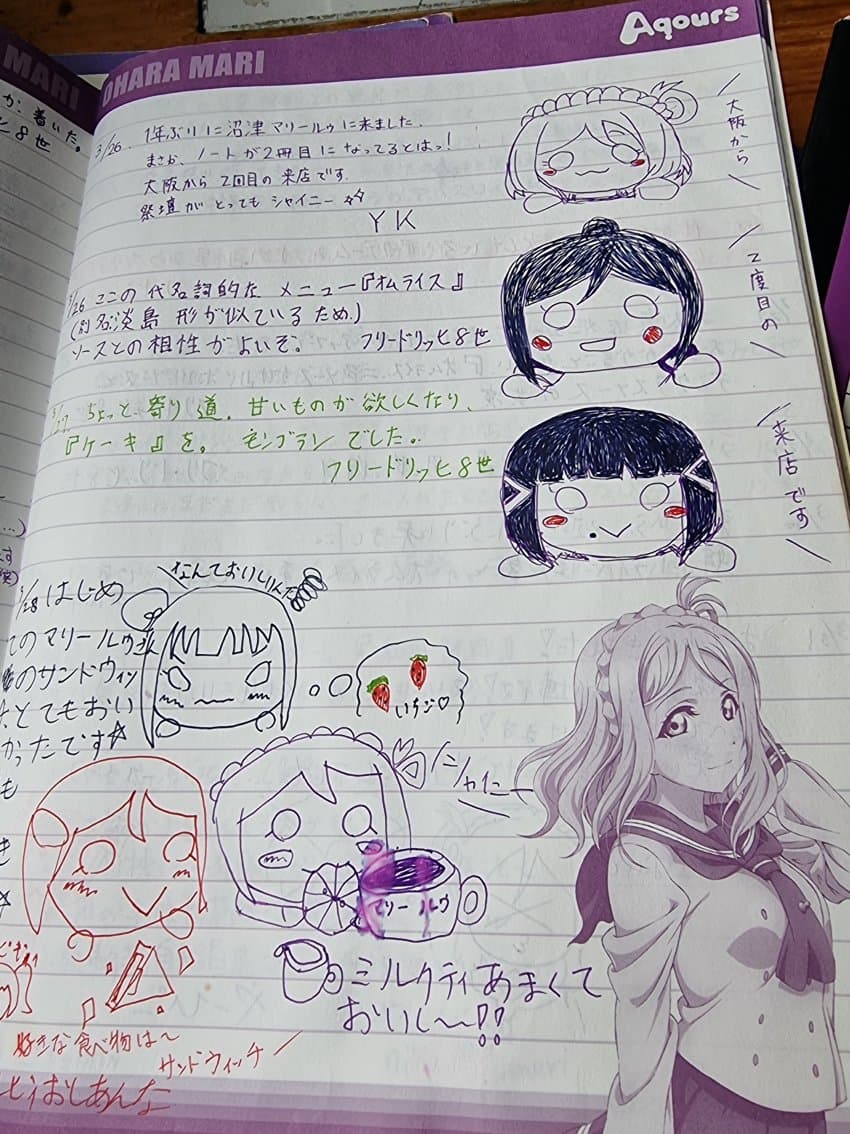 Aqours
MARI
OHARA MARI
か 着いた。
ヒ8世
3/26. 1年ぶりに沼津マリールゥに来ました。
まさか、ノートが2冊目になってるとはっ!
大阪から2回目の来店です。
祭壇がとってもシャイニー☆☆
YK
大阪から
2度目の
来店です
3/26 ここの代名詞的なメニュー『オムライス』
(別名:淡島 形が似ているため。)
ソースとの相性がよいぞ。 フリードリッヒ8世
3/27. ちょっと寄り道。甘いものが欲しくなり、
『ケーキ』を。 モンブランでした。
フリードリッヒ8世
3/28 はじめ
てのマリールゥ
のサンドウィッ
とてもおい
かったです☆
も
なんておいしいんだ
いちご♡
シャイニー
マリールゥ
ミルクティあまくて
おいし〜!!
好きな食べ物は〜
サンドウィッチ